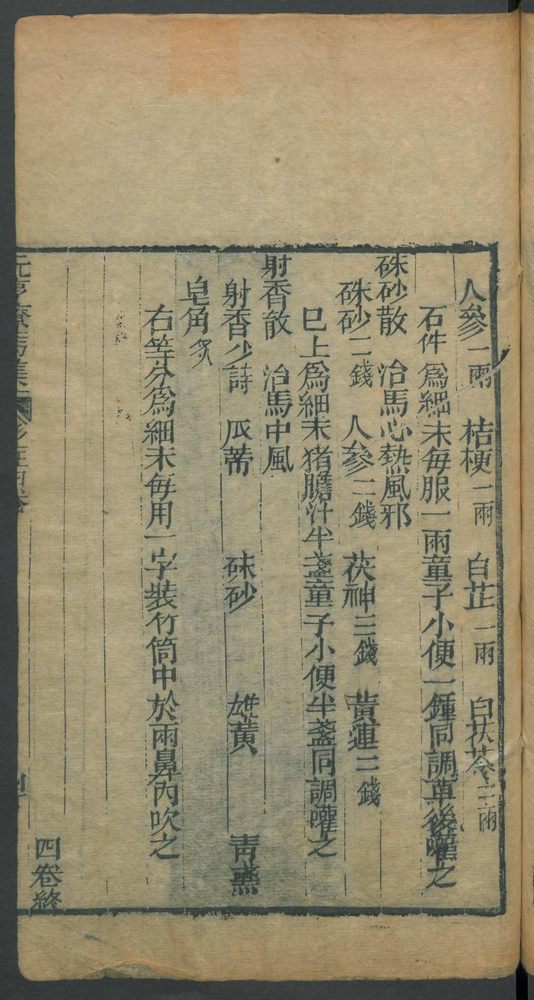 人參一兩 桔梗一兩 白芷一兩 白茯苓二兩
石件為細末每服一兩童子小便一鍾同調草後嚾之
硃砂散 治馬心熱風邪
硃砂二錢 人參二錢 茯神三錢 黃連三錢
已上為細末猪膽汁半盞童子小便半盞同調嚾之
射香散 治馬中風
射香少許 瓜蒂 硃砂 雄黃
皂角炙
右等分為細末每用一字裝竹筒中於兩鼻內吹之
四卷終
元亨療馬集